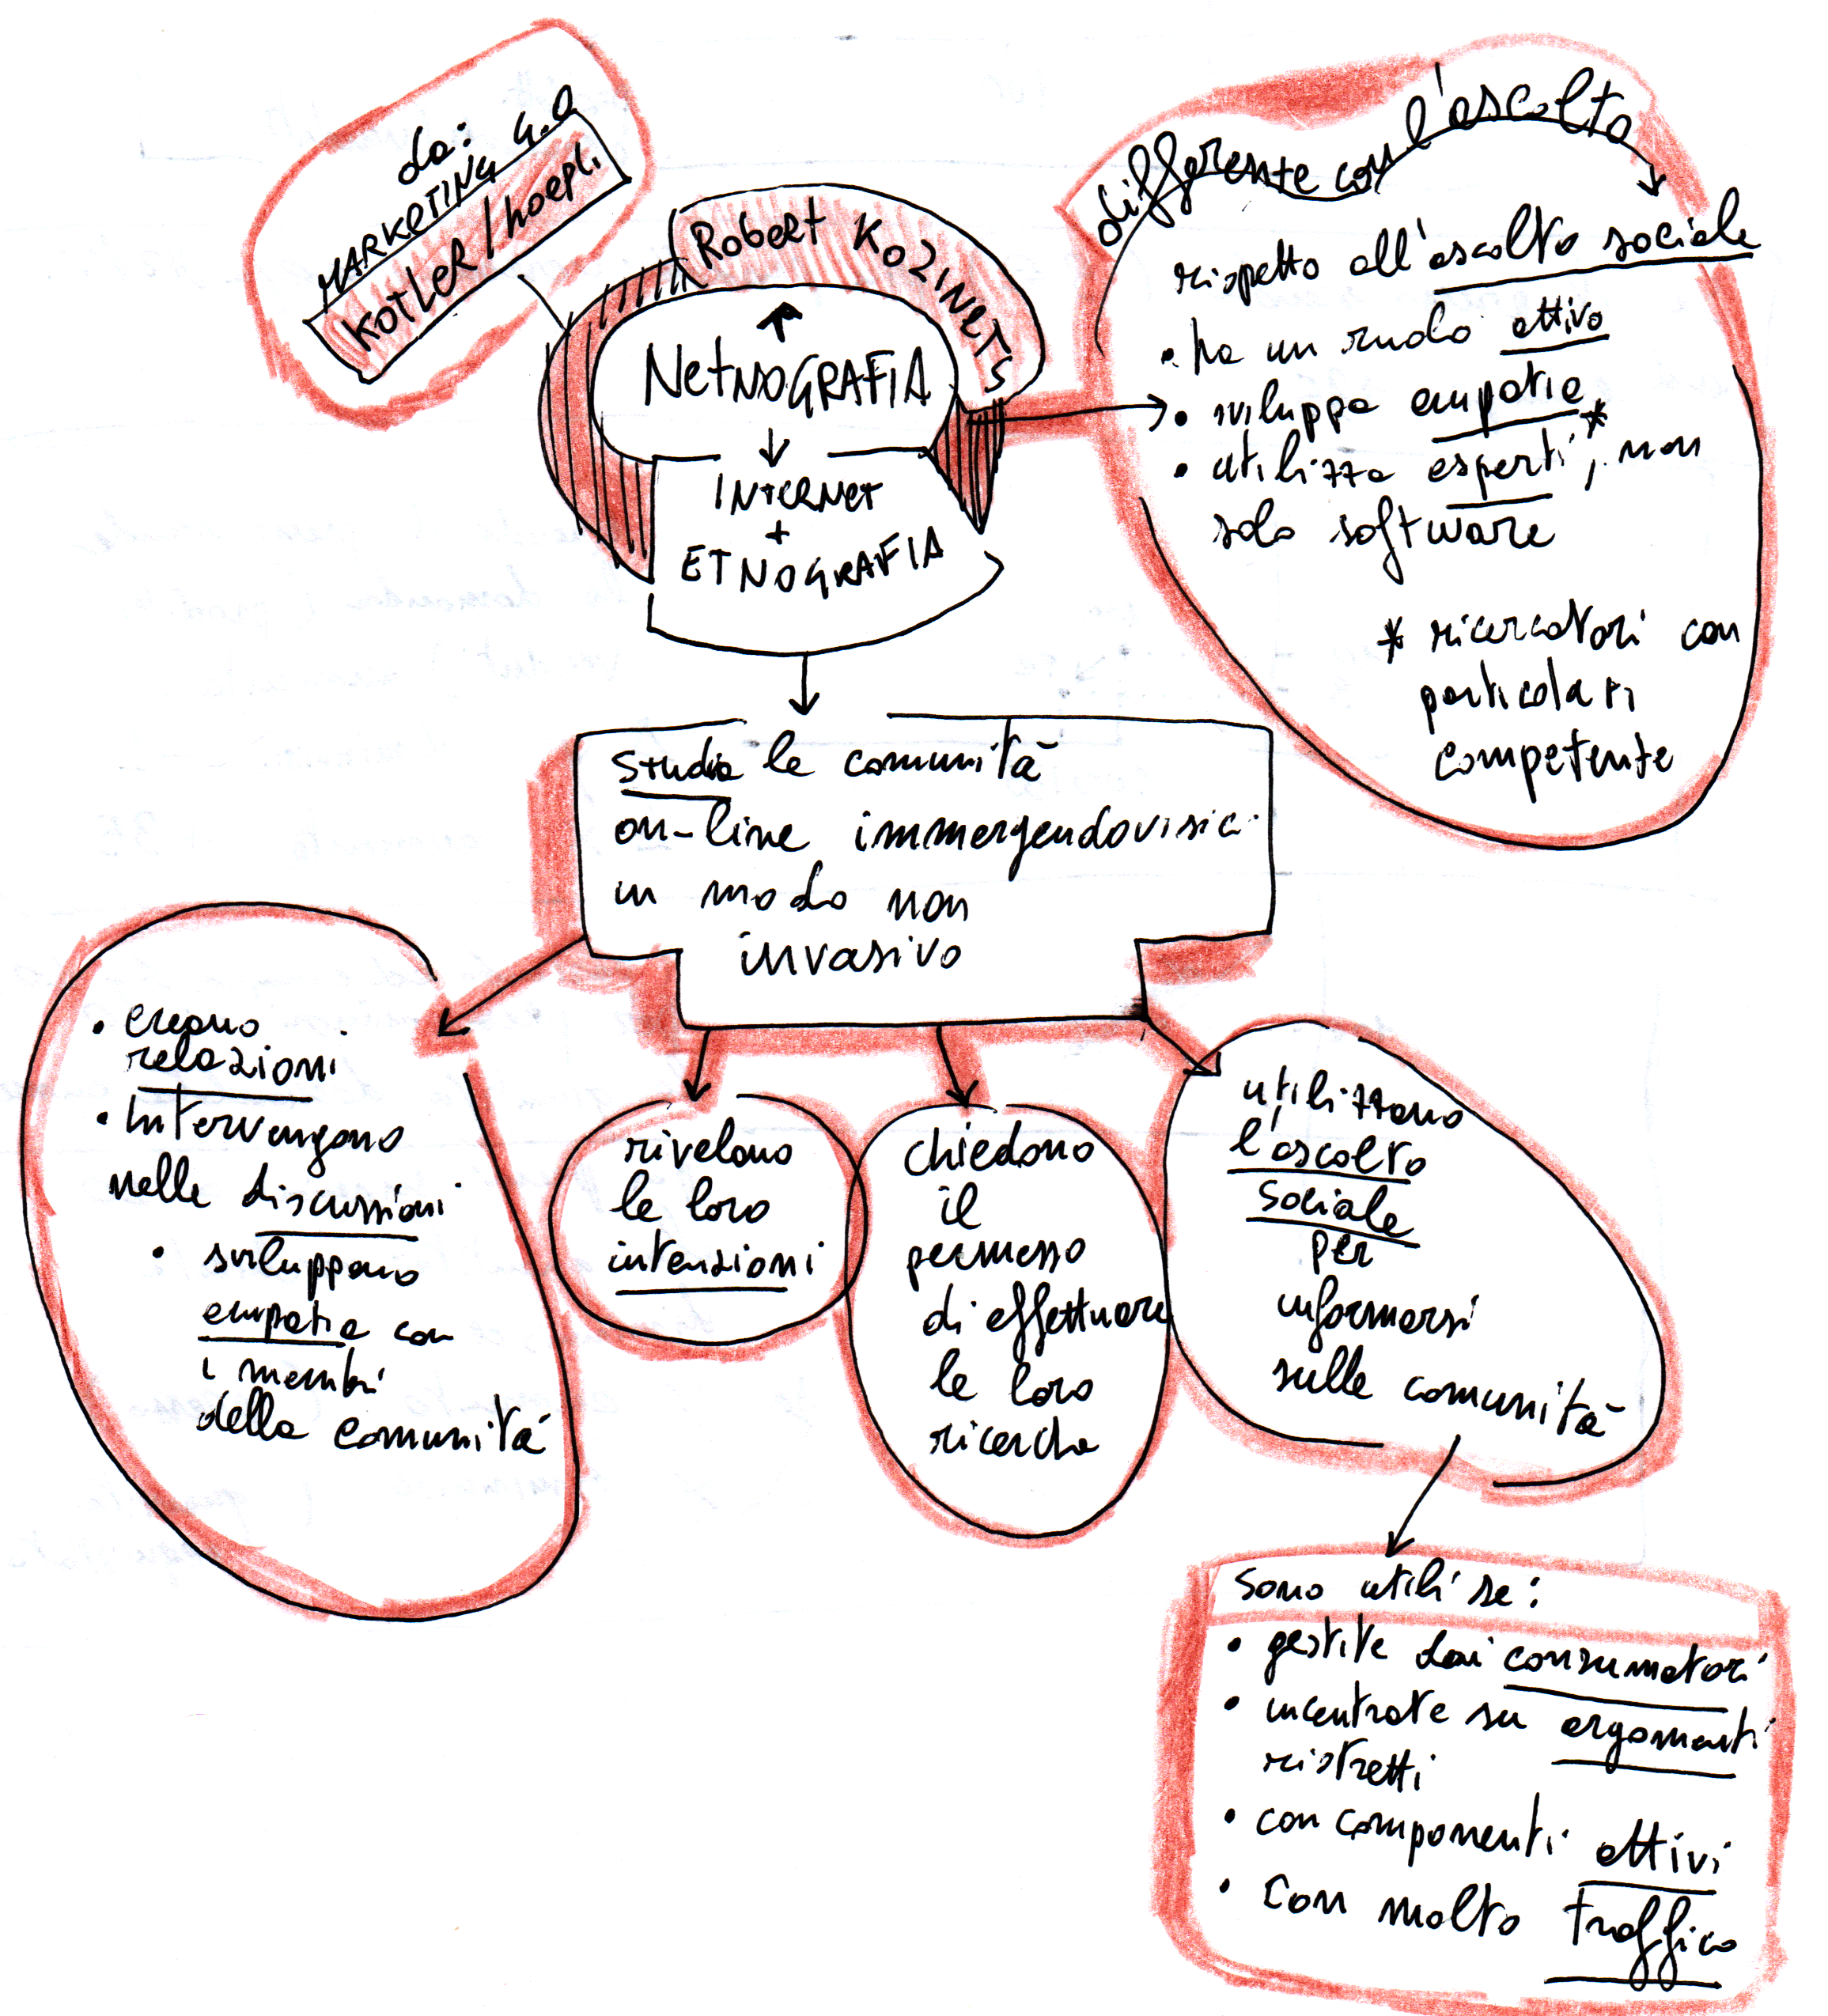 da:
MARKETING 4.0
KOTLER / hoepli
Robert KOZINETS
NETNOGRAFIA
INTERNET
+
ETNOGRAFIA
differente con l'ascolto
rispetto all'ascolto sociale
• ha un ruolo attivo
• sviluppa empatia
• utilizza esperti*, non
solo software
* ricercatori con
particolari
competenze
Studia le comunità
on-line immergendovisi
in modo non
invasivo
• creano
relazioni
• Intervengono
nelle discussioni
• sviluppano
empatia con
i membri
della comunità
rivelano
le loro
intenzioni
chiedono
il
permesso
di effettuare
le loro
ricerche
utilizzano
l'ascolto
sociale
per
informarsi
sulle comunità
Sono utili se:
• gestite dai consumatori
• incentrate su argomenti
ristretti
• con componenti attivi
• con molto traffico